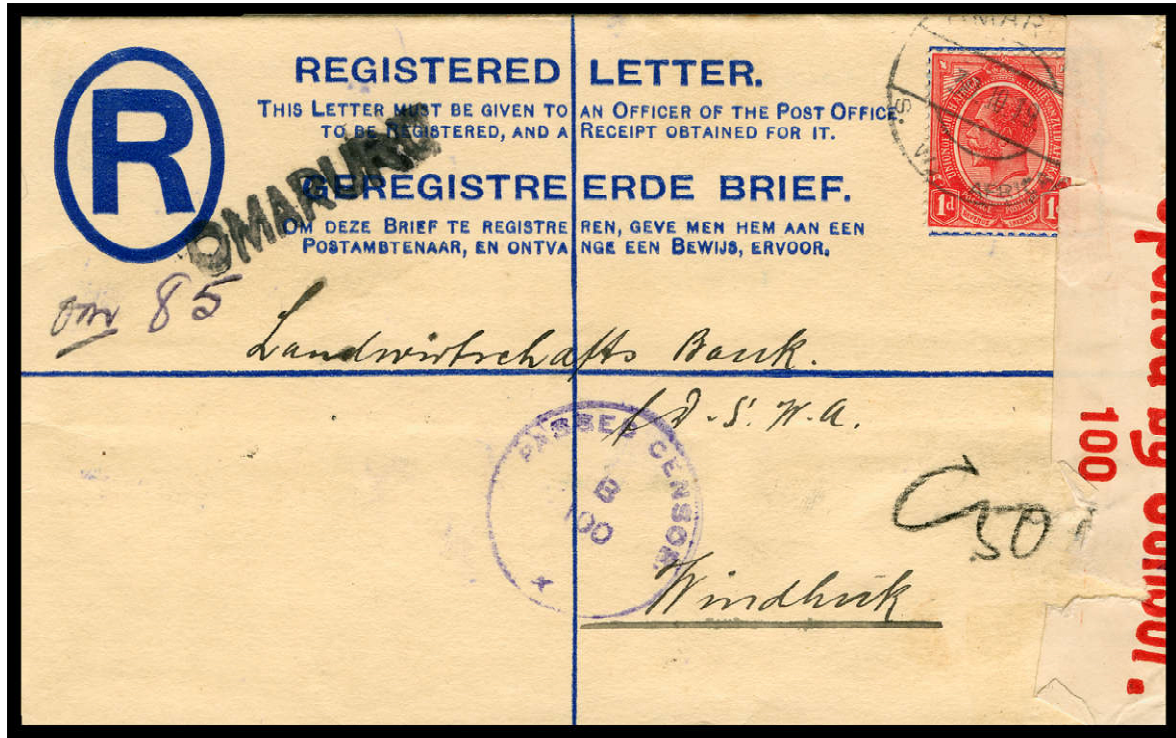 REGISTERED LETTER.
THIS LETTER MUST BE GIVEN TO AN OFFICER OF THE POST OFFICE
TO BE REGISTERED, AND A RECEIPT OBTAINED FOR IT.
GEREGISTREERDE BRIEF.
OM DEZE BRIEF TE REGISTREREN, GEVE MEN HEM AAN EEN
POSTAMBTENAAR, EN ONTVANGE EEN BEWIJS, ERVOOR.
R
OMARURU
85
UNION OF SOUTH AFRICA
1d
Landwirtschafts Bank.
f D.S.W.A.
Windhuk
PASSED CENSOR
B
100
50
Opened by Censor.
100